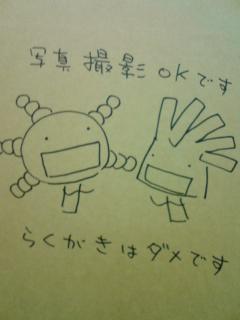 写真撮影OKです
らくがきはダメです